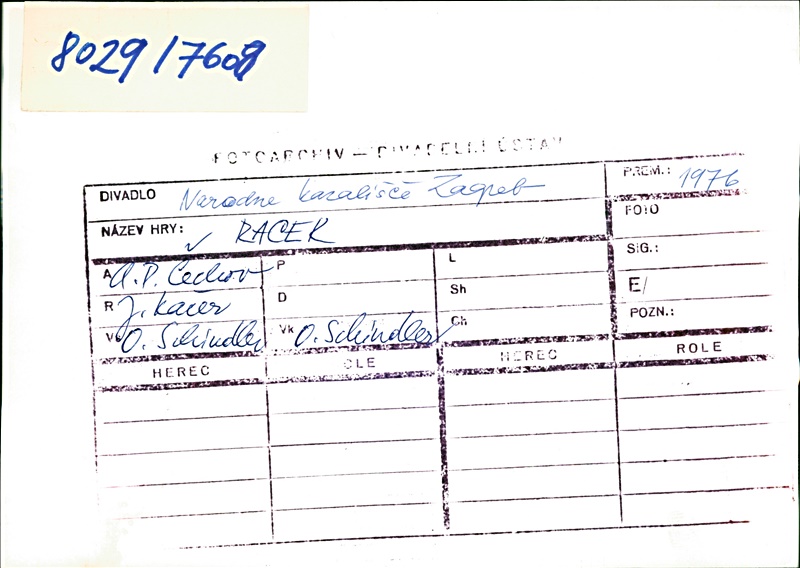 8029/7609
FOTOARCHIV — DIVADELNÍ ÚSTAV
DIVADLO Narodne kazališče Zagreb
PREM.: 1976
NÁZEV HRY: ✓ RACEK
FOTO
A A. P. Čechov P L SIG.:
R J. Kačer D Sh E/
V O. Schindler Vk O. Schindler ✓ Ch POZN.:
HEREC OLE HEREC ROLE